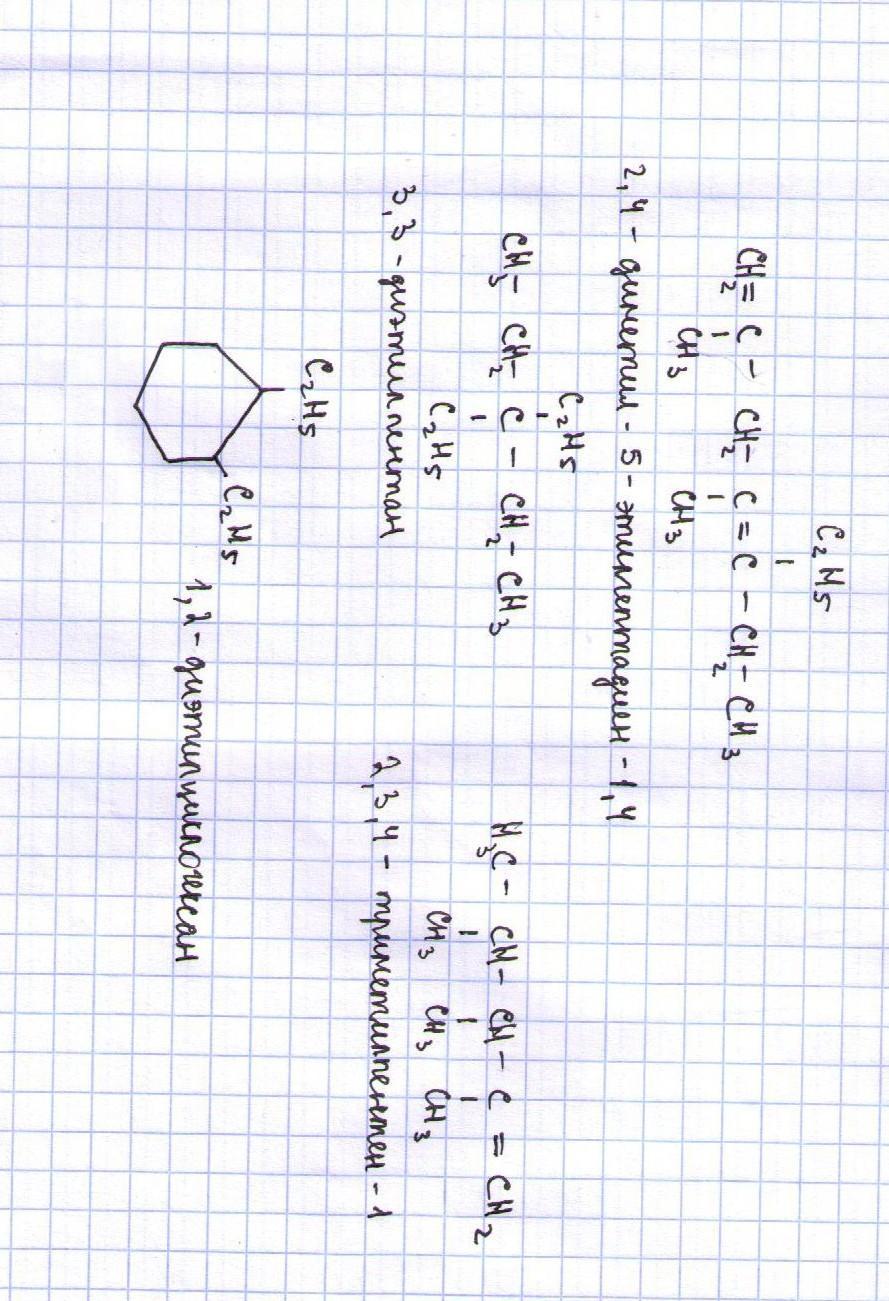 C₂H₅
CH₂=C-CH₂-C=C-CH₂-CH₃
CH₃ CH₃
2,4-диметил-5-этилгептадиен-1,4
C₂H₅
CH₃-CH₂-C-CH₂-CH₃
C₂H₅
3,3-диэтилпентан
H₃C-CH-CH-C=CH₂
CH₃ CH₃ CH₃
2,3,4-триметилпентен-1
C₂H₅
C₂H₅
1,2-диэтилциклогексан